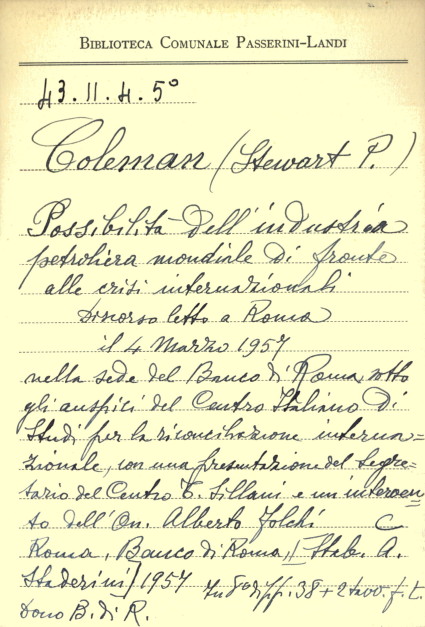 BIBLIOTECA COMUNALE PASSERINI-LANDI
43.11.4.5°
Coleman (Stewart P.)
Possibilità dell'industria
petroliera mondiale di fronte
alle crisi internazionali
Discorso letto a Roma
il 4 Marzo 1957
nella sede del Banco di Roma sotto
gli auspici del Centro Italiano di
Studi per la riconciliazione interna=
zionale, con una presentazione del Segre=
tario del Centro T. Sillani e un interven=
to dell'On. Alberto Folchi
Roma, Banco di Roma, Stab. A.
Staderini] 1957 In 8° di pp. 38 + 2 tavv. f. t.
Dono B. di R.